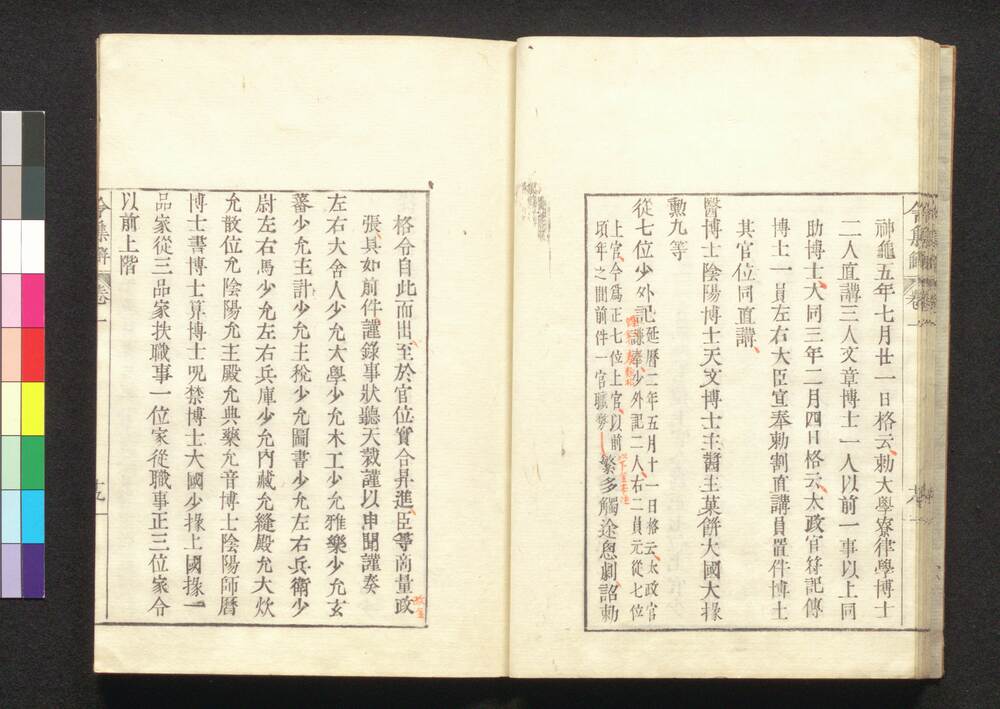 神龜五年七月廿一日格云勅大學寮律學博士
二人直講三人文章博士一人以前一事以上同
助博士大同三年二月四日格云太政官符記傳
博士一員左右大臣宣奉勅割直講員置件博士
其官位同直講
醫博士陰陽博士天文博士主醬主菓餅大國大掾
勳九等
從七位少外記延曆二年五月十一日格云太政官
謹奏少外記二人右二員元從七位
上官今爲正七位上官以前
頃年之間前件一官職務繁多觸途怱劇詔勅
格令自此而出至於官位實合昇進臣等商量改
張具如前件謹錄事狀聽天裁謹以申聞謹奏
左右大舍人少允大學少允木工少允雅樂少允玄
蕃少允主計少允主稅少允圖書少允左右兵衛少
尉左右馬少允左右兵庫少允內藏允縫殿允大炊
允散位允陰陽允主殿允典藥允音博士陰陽師曆
博士書博士算博士呪禁博士大國少掾上國掾一
品家從三品家扶職事一位家從職事正三位家令
以前上階
令集解 卷一